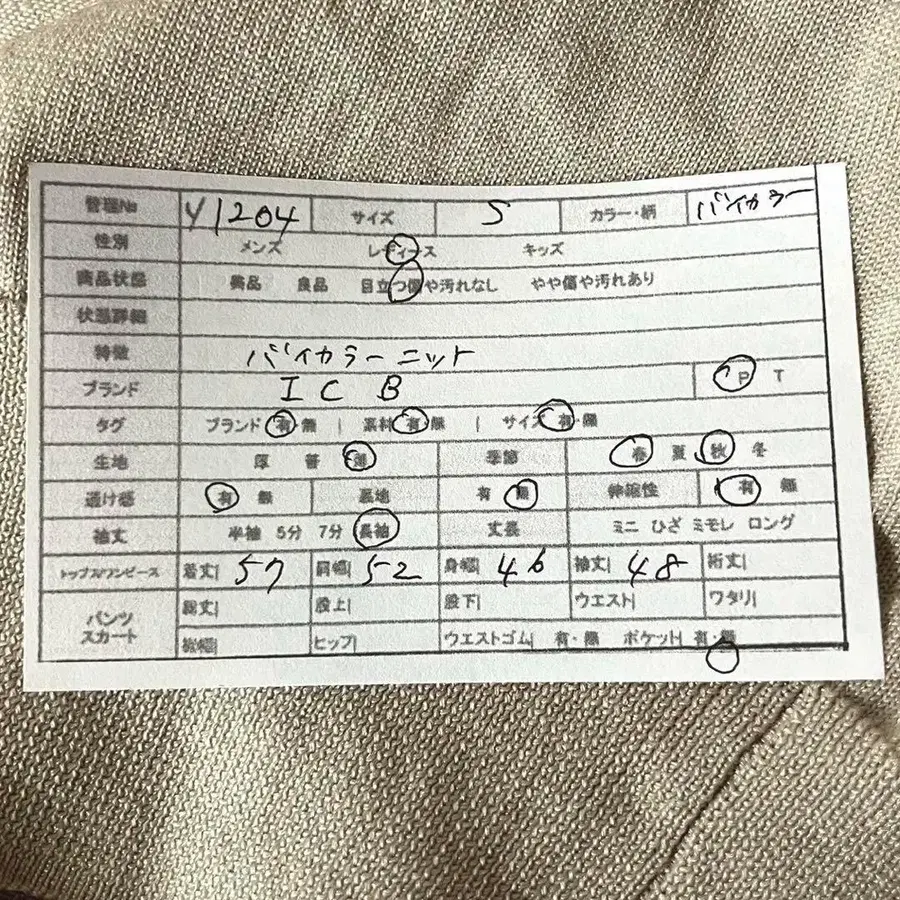 管理No Y1204 サイズ S カラー・柄 バイカラー
性別 メンズ レディース キッズ
商品状態 美品 良品 目立つ傷や汚れなし やや傷や汚れあり
状態詳細
特徴 バイカラーニット
ブランド ICB P T
タグ ブランド 有・無 | 素材 有・無 | サイズ 有・無
生地 厚 普 薄 季節 春 夏 秋 冬
透け感 有 無 裏地 有 無 伸縮性 有 無
袖丈 半袖 5分 7分 長袖 丈長 ミニ ひざ ミモレ ロング
トップス/ワンピース 着丈| 57 肩幅| 52 身幅| 46 袖丈| 48 裄丈|
パンツ スカート 総丈| 股上| 股下| ウエスト| ワタリ|
裾幅| ヒップ| ウエストゴム| 有・無 ポケット| 有・無